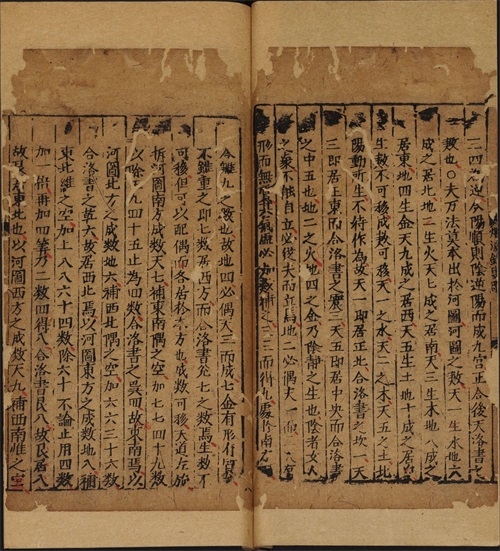 二四逆陽順則陰逆陽而成九宮正合後天洛書
数也○夫万法莫本出於河圖河圖之数天一生水地六
成之居北地二生火天七成之居南天三生木地八成之
居東地四生金天九成之居西天五生土地十成之居
生数不可移成数可移天一之水天三之木天五之土北
陽動所生不待作為故天一即居正北合洛書之坎一天
三即居正東而合洛書之震三天五即居中央而合洛書
之中五也地二之火地四之金乃陰靜之生也陰者女人
之象不能自立必後夫而立焉地二必偶天一而
形而無虛必加数補之三而得九属於南
合離九之数也故地四必偶天三而成七金有形行質
不雖重之即七数居西方而合洛書兌七之数焉生数不
可移但可以配偶而各居於本方也成数可移天道左旋
拆河圖南方成数天七補東南隅之空加七七四十九数
以除五九四十五止為四数合洛書之巽四故東南焉以
河圖北方之成数地六補西北隅之空加六六三十六数
合洛書之乹六故居西北焉以河圖東方之成数地八補
東北維之空加上八八六十四数除六十不論止用四数
加一倍再加四筭乃二数四得八合洛書艮八故艮居八
故居東北也以河圖西方之成数天九補西南維之空